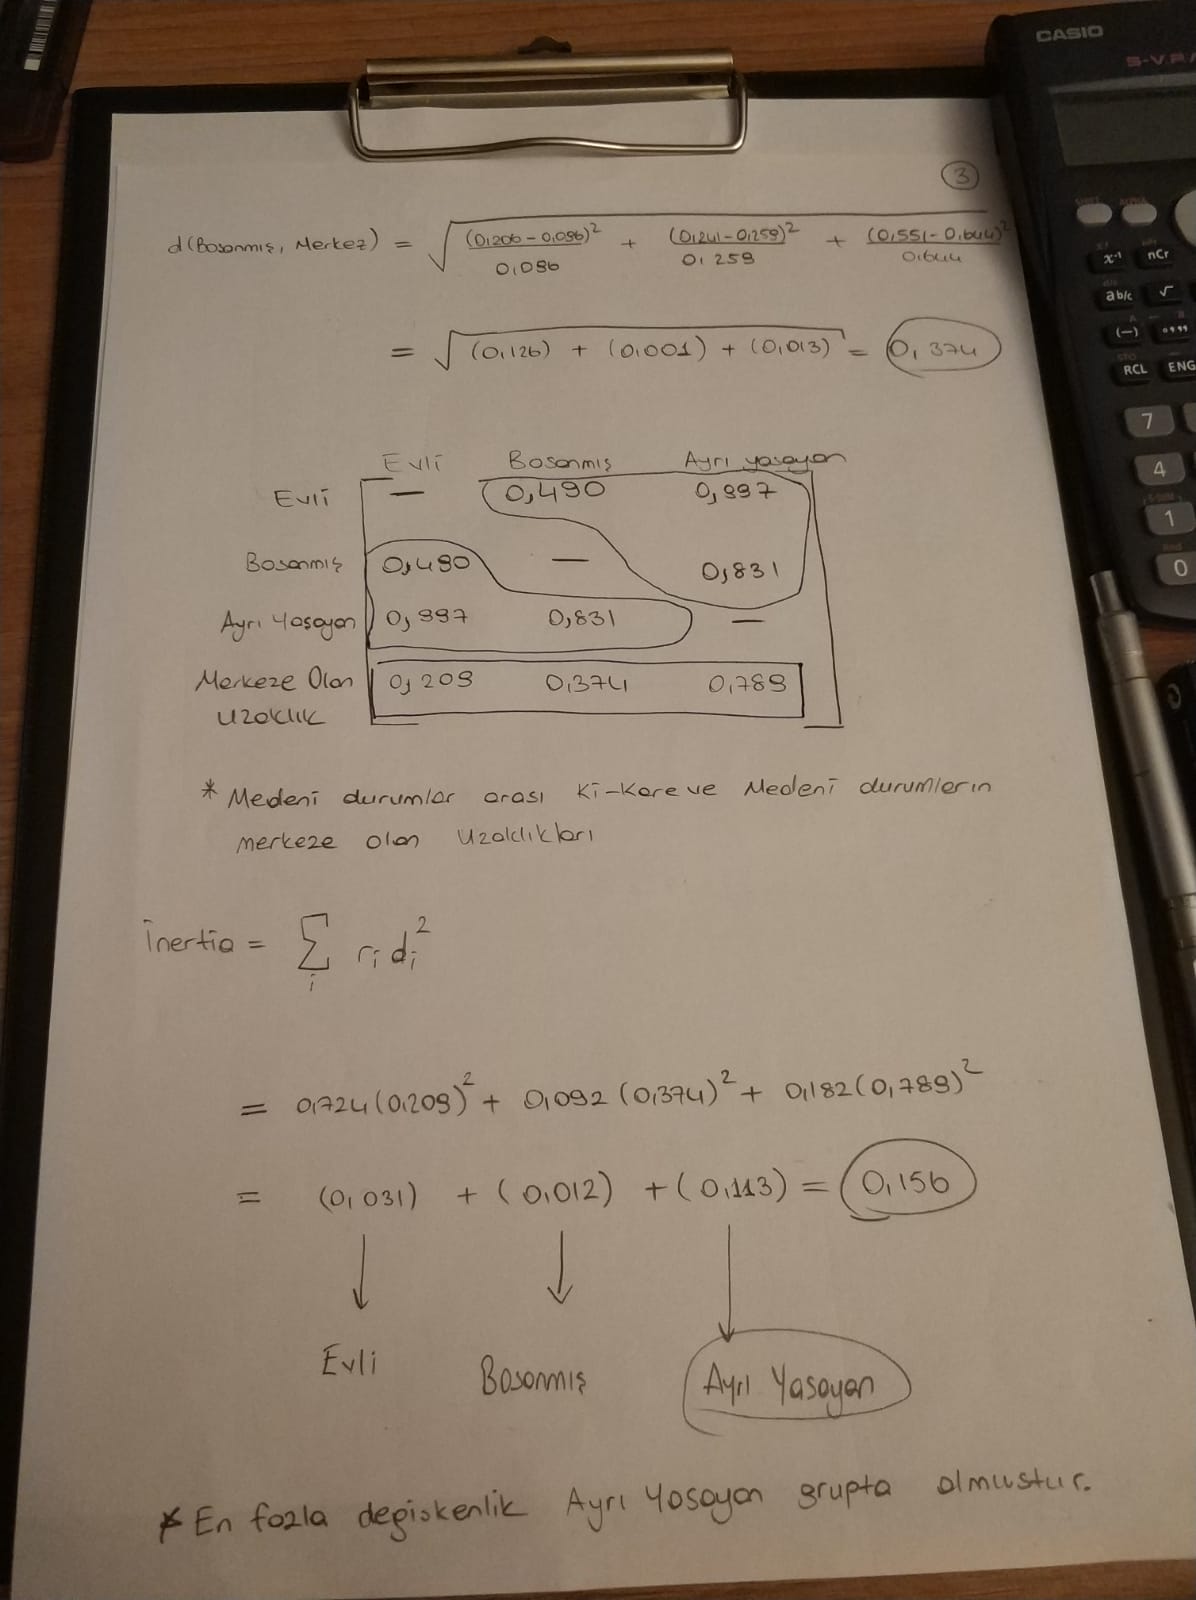 CASIO
S-V.P.A
3
d(Bosanmış, Merkez) = √ (0,206-0,096)² / 0,096 + (0,241-0,259)² / 0,259 + (0,551-0,644)² / 0,644
= √ (0,126) + (0,001) + (0,013) = 0,374
Evli Bosanmış Ayrı yasayan
Evli — 0,490 0,997
Bosanmış 0,490 — 0,831
Ayrı Yaşayan 0,997 0,831 —
Merkeze Olan 0,209 0,374 0,789
uzaklık
* Medeni durumlar arası Ki-Kare ve Medeni durumların
merkeze olan uzaklıkları
İnertia = Σ i ri di²
= 0,724(0,209)² + 0,092(0,374)² + 0,182(0,789)²
= (0,031) + (0,012) + (0,113) = 0,156
Evli
Bosanmış
Ayrı Yasayan
* En fazla degiskenlik Ayrı Yasayan grupta olmustur.
SHIFT ALPHA
x⁻¹ nCr
ab/c √
(−) 
STO
RCL ENG
7
4
1
0